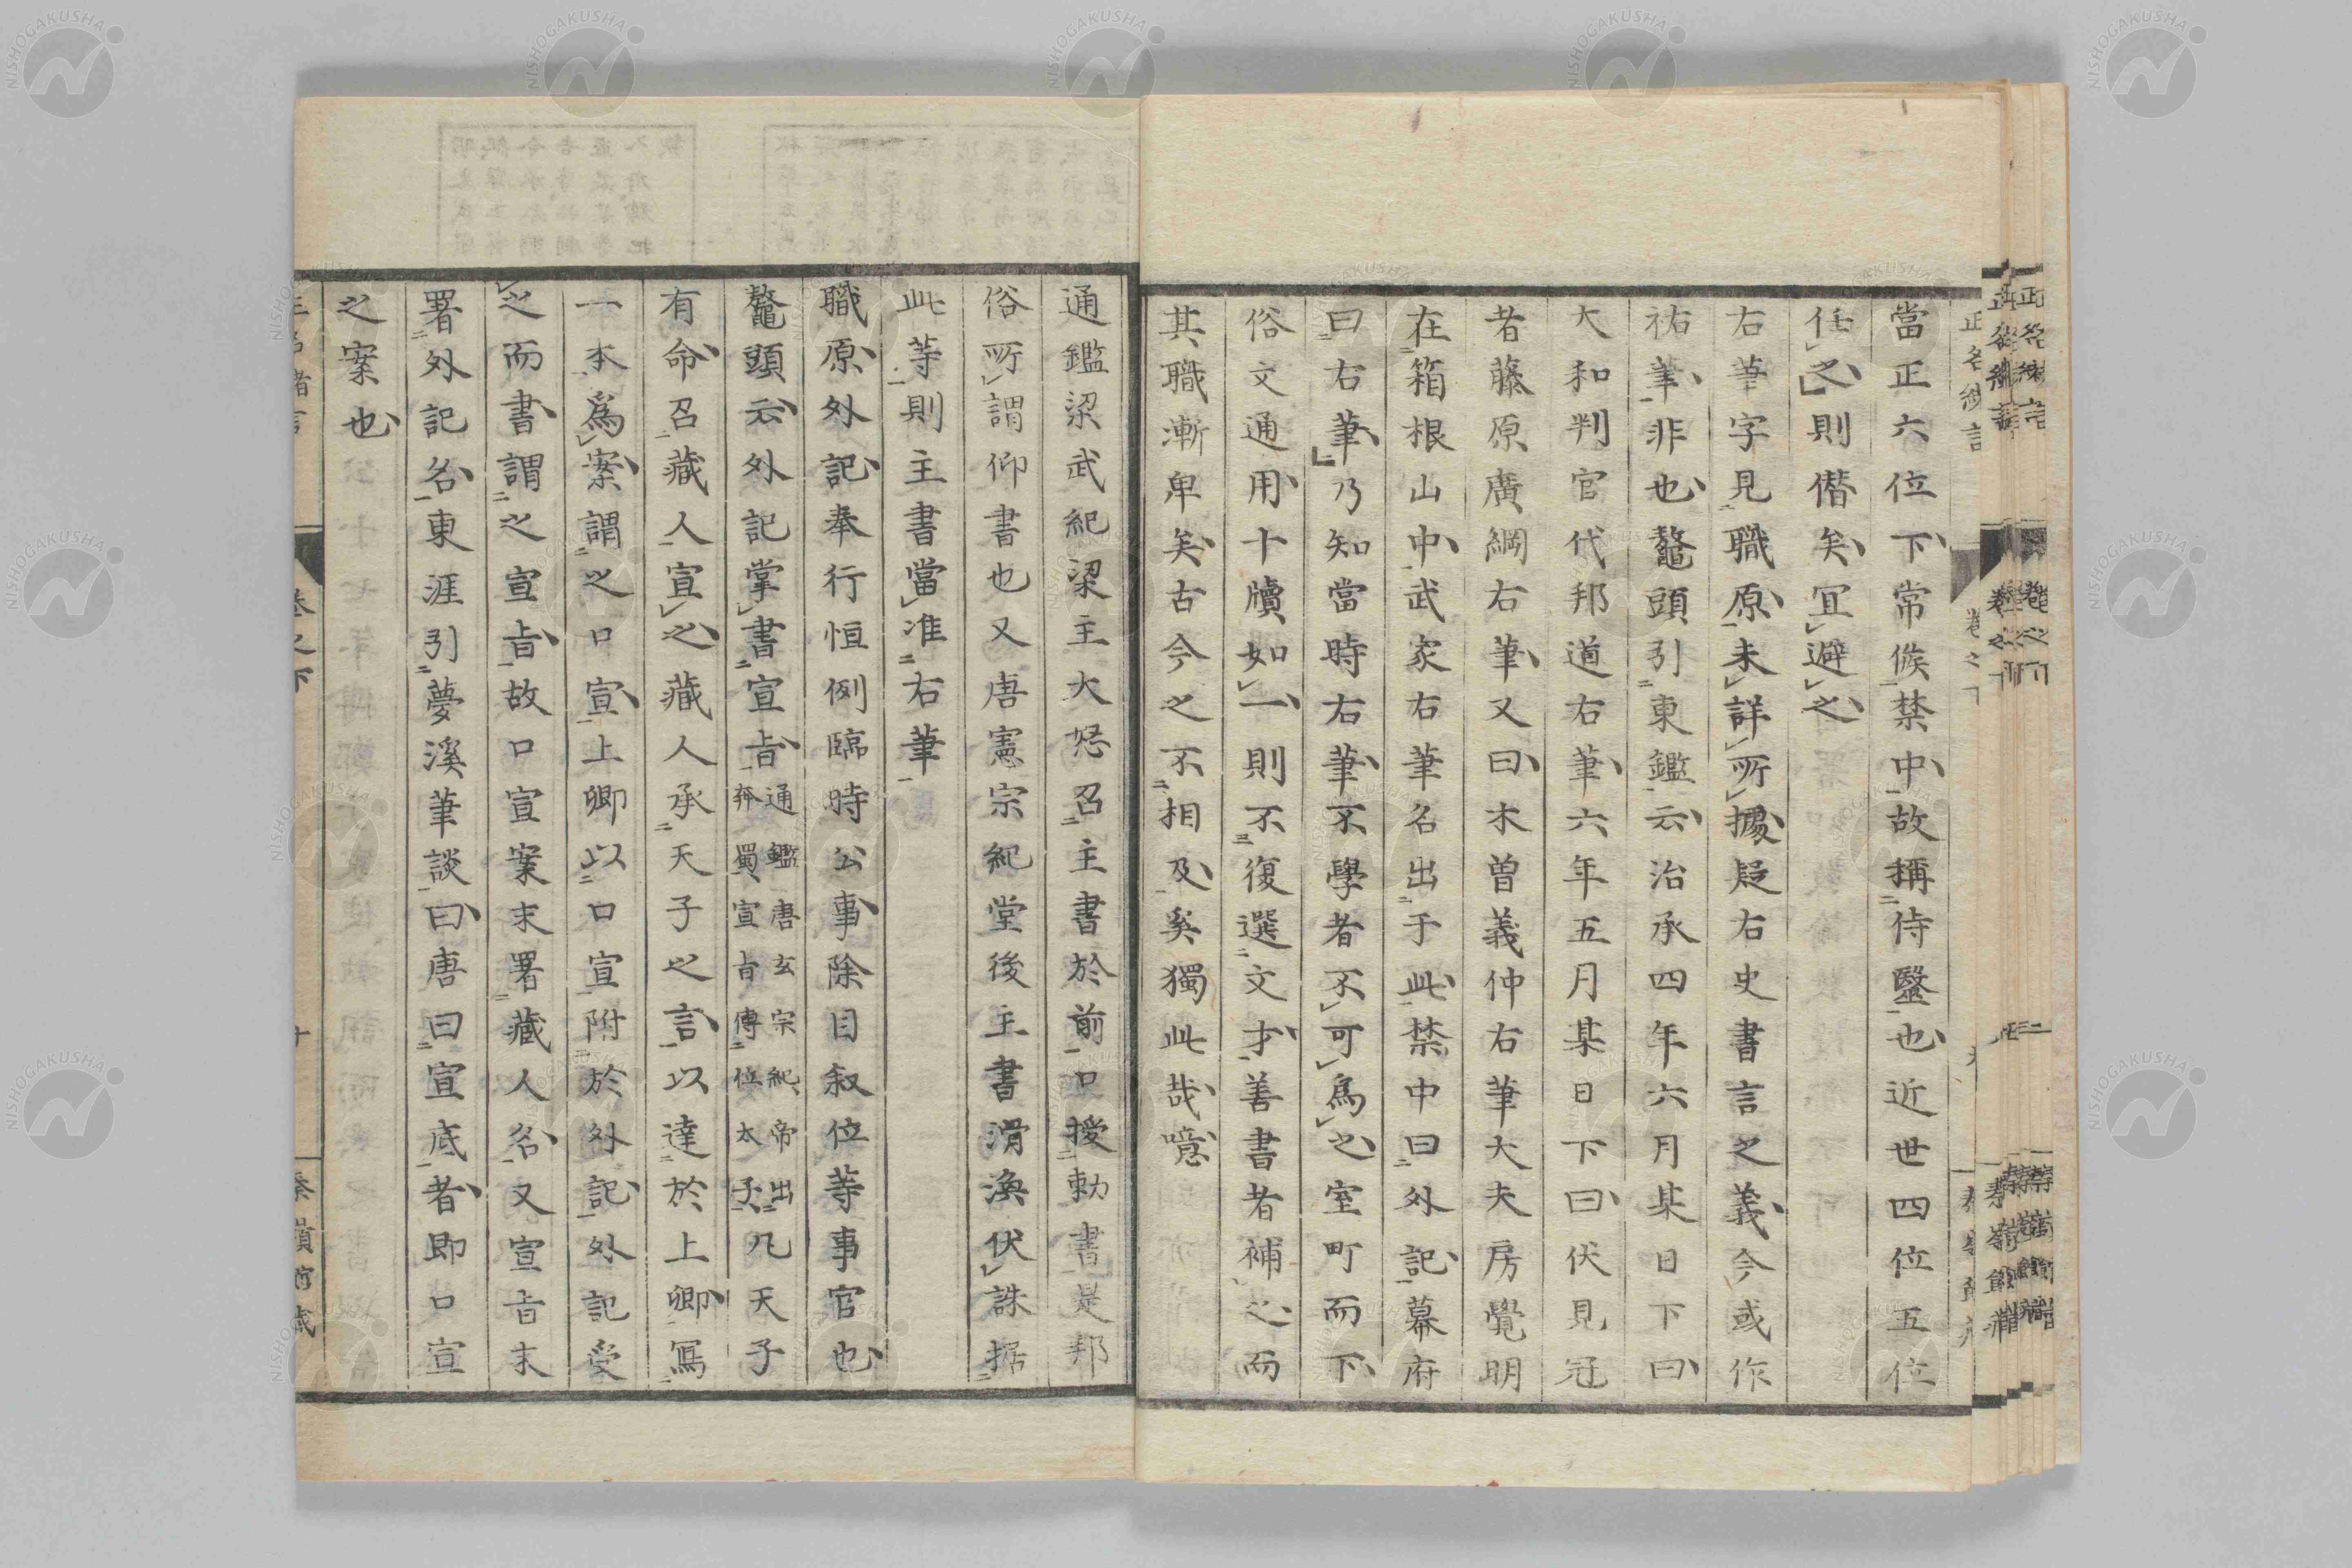 當正六位下常候禁中故稱侍醫也近世四位五位
任之則僭矣宜避之
右筆字見職原未詳所據疑右史書言之義今或作
祐筆非也鼇頭引東鑑云治承四年六月某日下曰
大和判官代邦道右筆六年五月某日下曰伏見冠
者藤原廣綱右筆又曰木曽義仲右筆大夫房覺明
在箱根山中武家右筆名出于此禁中曰外記幕府
曰右筆乃知當時右筆不學者不可爲之室町而下
俗文通用十牘如一則不復選文才善書者補之而
其職漸卑矣古今之不相及奚獨此哉噫
通鑑梁武紀梁主大怒召主書於前口授勅書是邦
俗所謂仰書也又唐憲宗紀堂後主書滑渙伏誅据
此等則主書當准右筆
職原外記奉行恒例臨時公事除目叙位等事官也
鼇頭云外記掌書宣旨通鑑唐玄宗紀帝出奔蜀宣旨傳位太子凡天子
有命召藏人宣之藏人承天子之言以達於上卿寫
一本爲案謂之口宣上卿以口宣附於外記外記受
之而書謂之宣旨故口宣案末署藏人名又宣旨末
署外記名東涯引夢溪筆談曰唐曰宣底者即口宣
之案也
正名緒言
卷之下
十